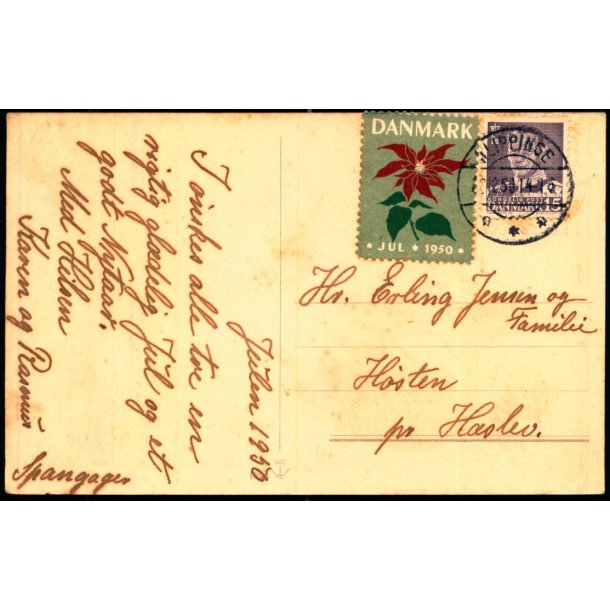 Julen 1950
I ønskes alle tre en
rigtig glædelig Jul og et
godt Nytaar.
Med Hilsen
Karen og Rasmus
Spangager
DANMARK
* JUL * 1950 *
KLIPPINGE
14-15
DANMARK 15
Hr. Erling Jensen og
Familie
Høsten
pr Haslev.